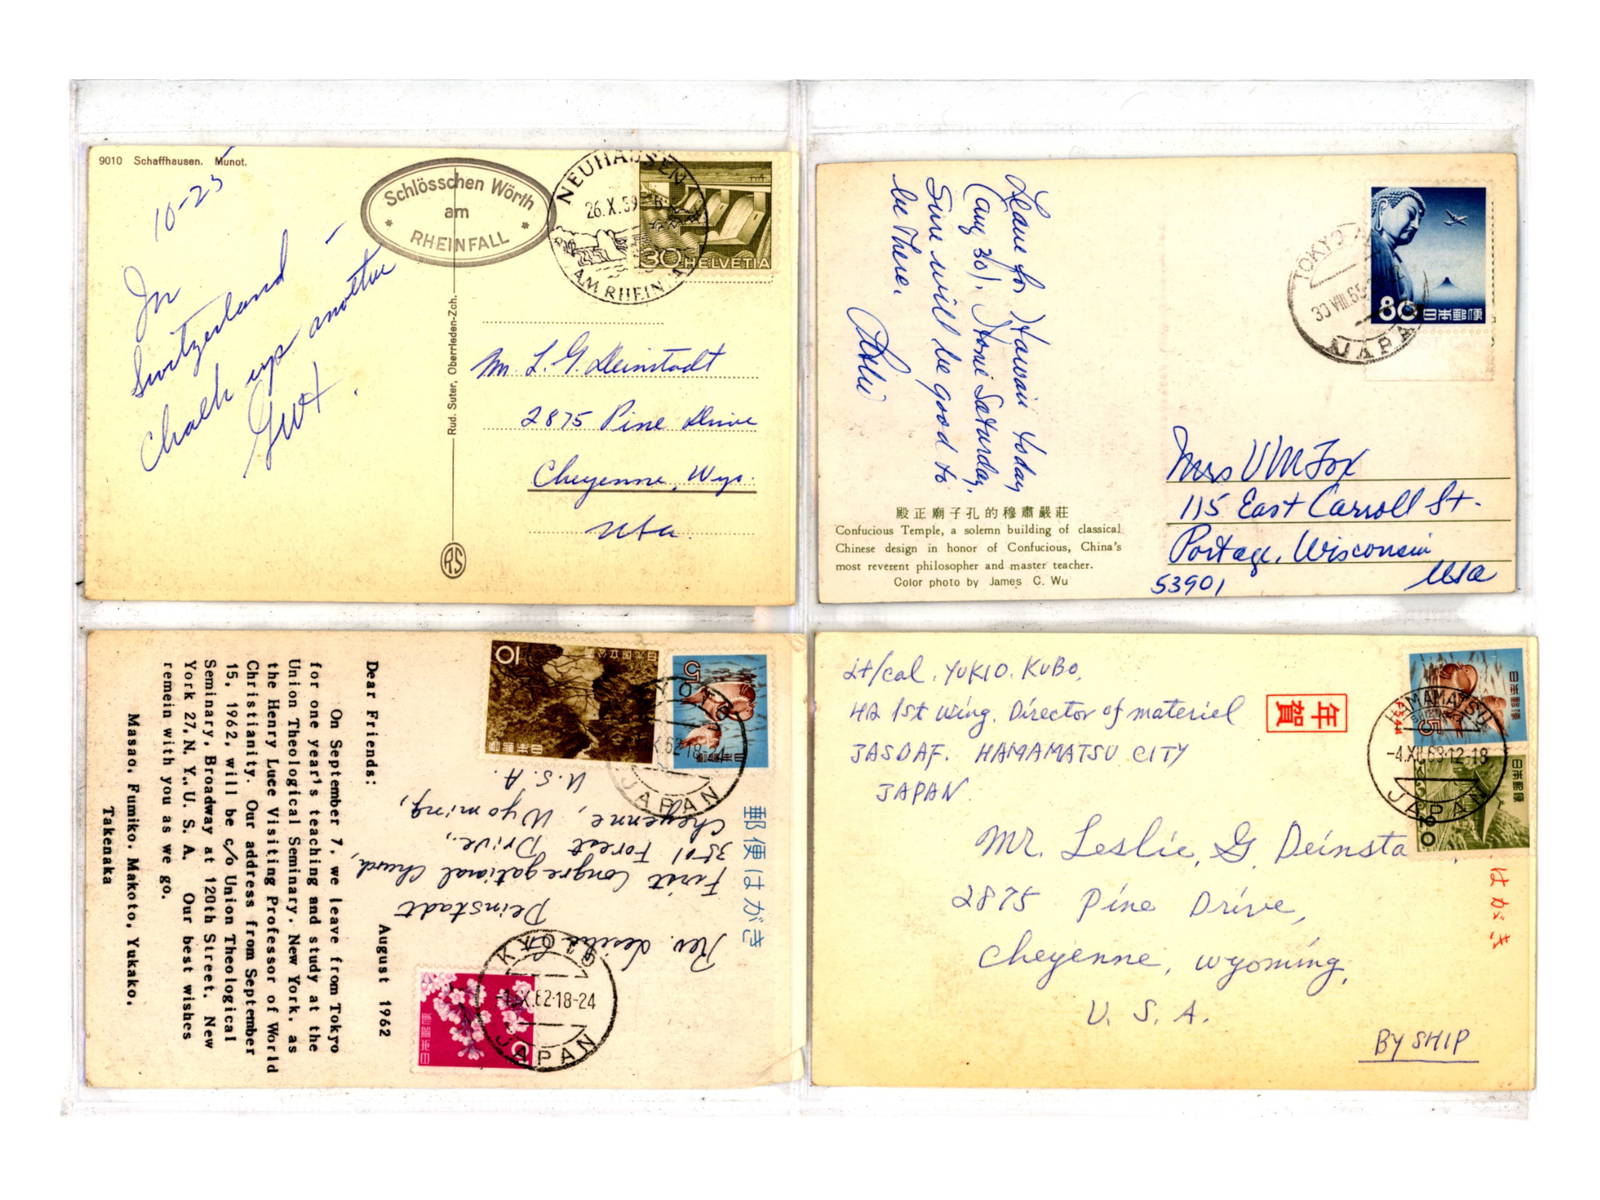 9010 Schaffhausen. Munot.
10-25
In
Switzerland
chalk up another
Schlösschen Wörth
am
RHEINFALL
NEUHAUSEN
26.X.59
AM RHEINFALL
30 HELVETIA
Rud. Suter, Oberrieden-Zch.
RS
Mr. L. G. Deinstadt
2875 Pine Drive
Cheyenne, Wyo.
USA.
Leave for Hawaii today
(Aug 30). Home Saturday.
Sure will be good to
be there.
Leslie
殿正廟子孔的穆肅嚴莊
Confucious Temple, a solemn building of classical
Chinese design in honor of Confucious, China's
most reverent philosopher and master teacher.
Color photo by James C. Wu
TOKYO
30 VIII.6
JAPAN
80 日本郵便
Mrs V M Fox
115 East Carroll St.
Portage, Wisconsin
53901 USA
August 1962
Dear Friends:
On September 7, we leave from Tokyo
for one year's teaching and study at the
Union Theological Seminary, New York, as
the Henry Luce Visiting Professor of World
Christianity. Our address from September
15, 1962, will be c/o Union Theological
Seminary, Broadway at 120th Street, New
York 27, N. Y., U. S. A. Our best wishes
remein with you as we go.
Masao, Fumiko, Makoto, Yukako,
Takenaka
郵便はがき
Rev. Leslie G.
Deinstadt
First Congregational Church,
3501 Forest Drive,
Cheyenne, Wyoming,
U.S.A.
10
日本郵便
5
KYOTO
.X.62.18-24
JAPAN
日本郵便
Lt/Col. YUKIO. KUBO.
HQ 1st Wing. Director of materiel
JASDAF. HAMAMATSU CITY
JAPAN.
年賀
日本郵便
5
HAMAMATSU
-4.XII.63.12-18
JAPAN
日本郵便
はがき
Mr. Leslie, G. Deinsta
2875 Pine Drive,
Cheyenne, Wyoming,
U. S. A.
BY SHIP